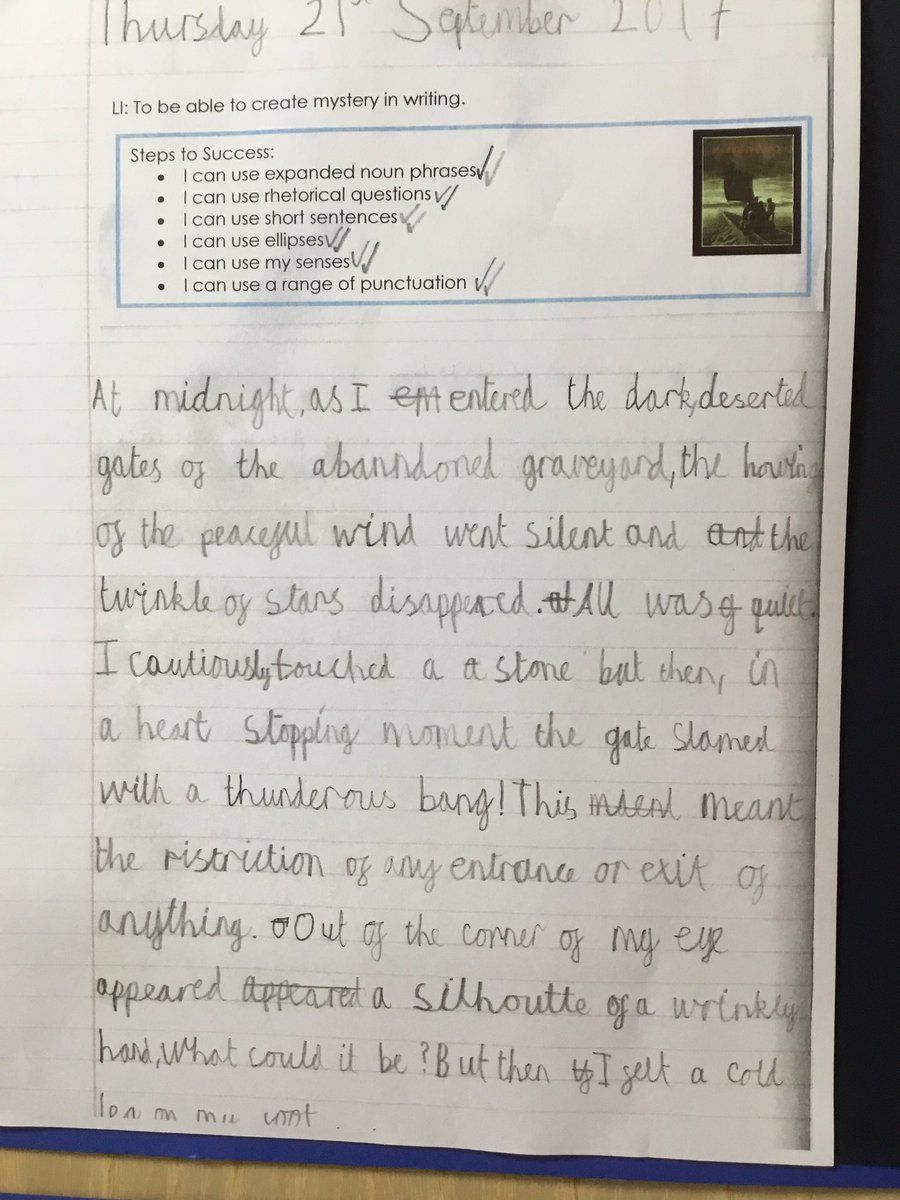 Thursday 21st September 2017
LI: To be able to create mystery in writing.
Steps to Success:
• I can use expanded noun phrases
• I can use rhetorical questions
• I can use short sentences
• I can use ellipses
• I can use my senses
• I can use a range of punctuation
At midnight, as I ent entered the dark, deserted
gates of the abanndoned graveyard, the howling
of the peaceful wind went silent and and the
twinkle of stars disappeared. at All was q quiet.
I cautiously touched a a stone but then, in
a heart stopping moment the gate slamed
with a thunderous bang! This meant
the ristriction of any entrance or exit of
anything. O Out of the corner of my eye
appeared appeared a silhoutte of a wrinkly
hand, What could it be? But then I felt a cold